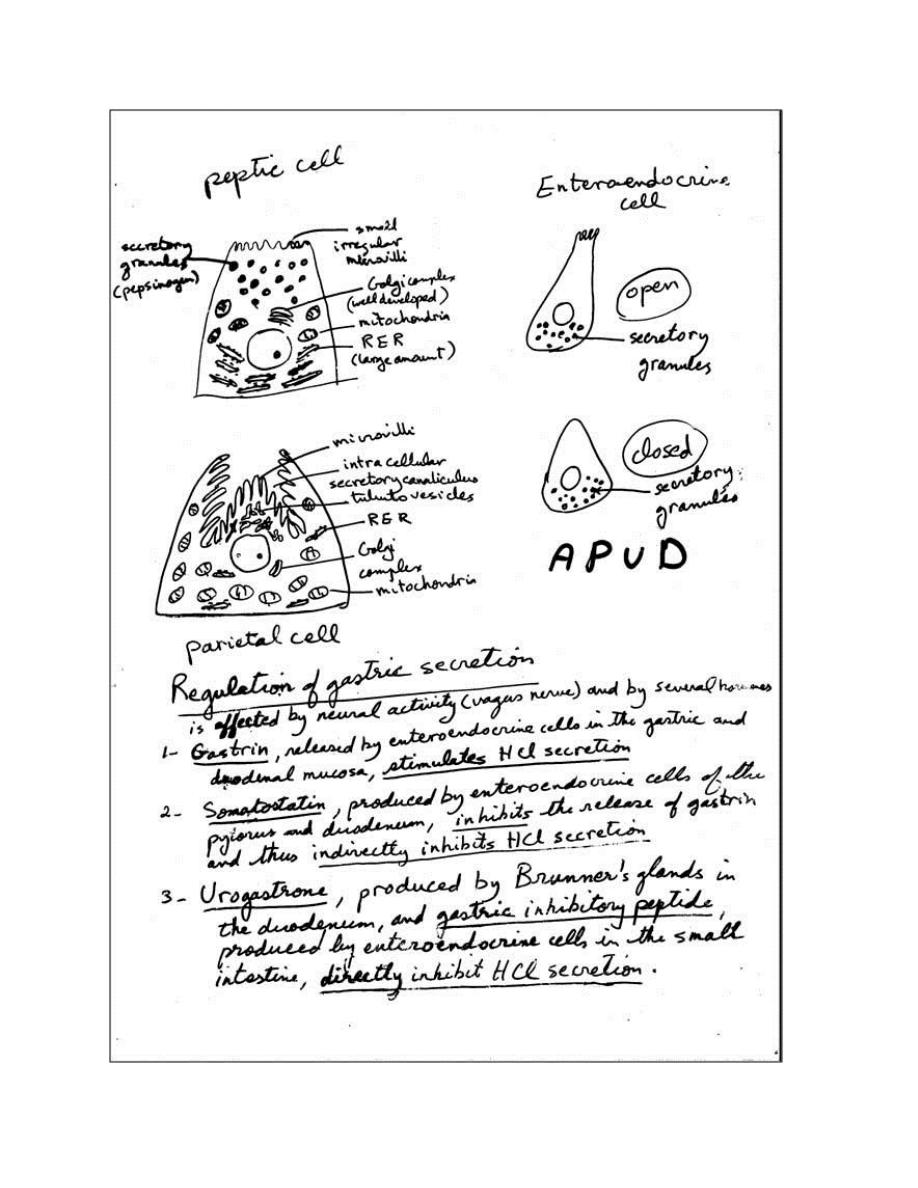 peptic cell
secretory
granules
(pepsinogen)
small
irregular
microvilli
Golgi complex
(well developed)
mitochondria
RER
(large amount)
Enteroendocrine
cell
open
secretory
granules
closed
secretory
granules
APUD
microvilli
intra cellular
secretory canaliculus
tubulo vesicles
RER
Golgi
complex
mitochondria
parietal cell
Regulation of gastric secretion
is affected by neural activity (vagus nerve) and by several hormones
1- Gastrin, released by enteroendocrine cells in the gastric and
duodenal mucosa, stimulates HCl secretion
2- Somatostatin, produced by enteroendocrine cells of the
pylorus and duodenum, inhibits the release of gastrin
and thus indirectly inhibits HCl secretion
3- Urogastrone, produced by Brunner's glands in
the duodenum, and gastric inhibitory peptide,
produced by enteroendocrine cells in the small
intestine, directly inhibit HCl secretion.